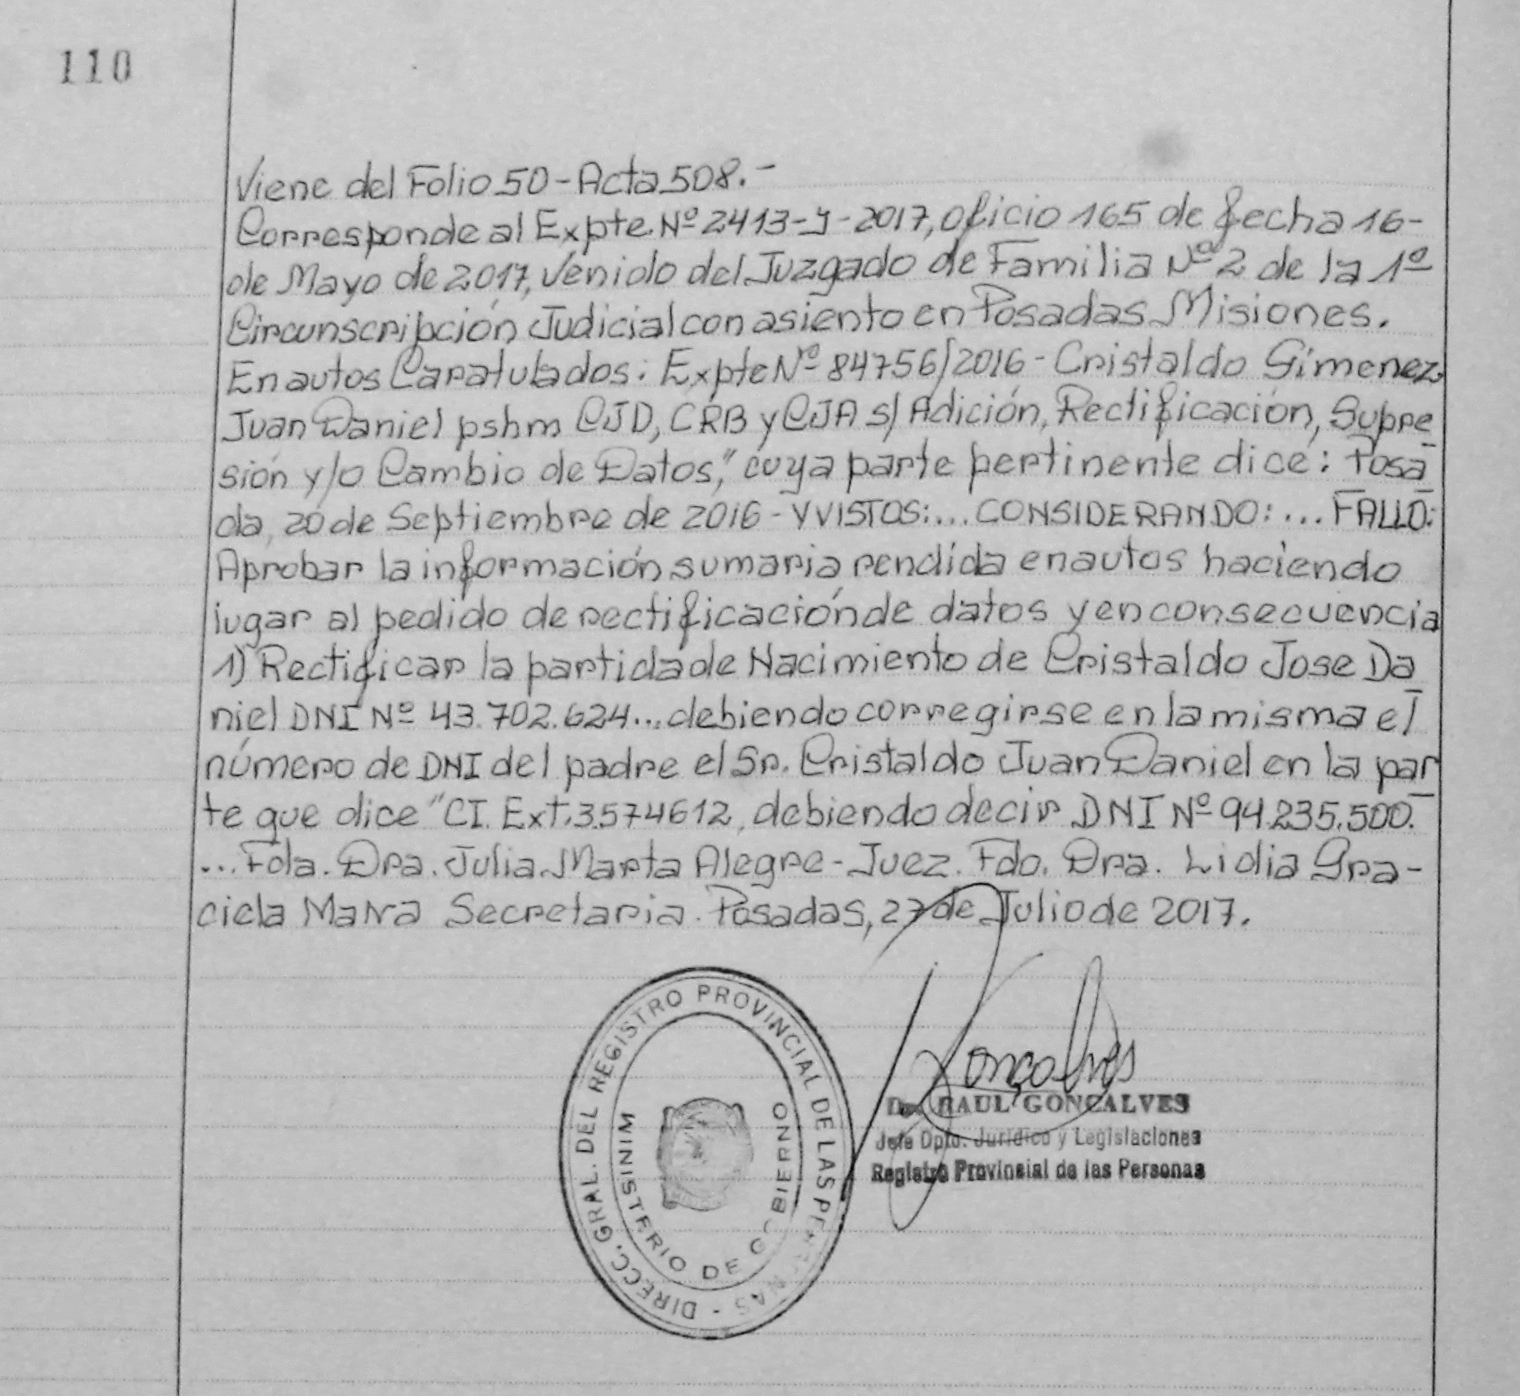 110
Viene del Folio 50-Acta 508.-
Corresponde al Expte Nº 2413-J-2017, oficio 165 de fecha 16-
de Mayo de 2017, venido del Juzgado de Familia Nº 2 de la 1º
Circunscripción Judicial con asiento en Posadas Misiones.
En autos Caratulados: Expte Nº 84756/2016 - Cristaldo Gimenez
Juan Daniel pshm CJD, CRB y CJA s/ Adición, Rectificación, Supre
sión y/o Cambio de Datos," cuya parte pertinente dice: Posa
da, 20 de Septiembre de 2016 - Y VISTOS:... CONSIDERANDO: ... FALLO:
Aprobar la información sumaria rendida en autos haciendo
lugar al pedido de rectificación de datos y en consecuencia
1) Rectificar la partida de Nacimiento de Cristaldo Jose Da
niel DNI Nº 43.702.624... debiendo corregirse en la misma el
número de DNI del padre el Sr. Cristaldo Juan Daniel en la par
te que dice "CI. Ext. 3.574612, debiendo decir DNI Nº 94.235.500.
... Fda. Dra. Julia Marta Alegre - Juez. Fdo. Dra. Lidia Gra-
ciela Secretaria. Posadas, 27 de Julio de 2017.
DIRECC. GRAL. DEL REGISTRO PROVINCIAL DE LAS PERSONAS -
MINISTERIO DE GOBIERNO
Goncalves
RAUL GONCALVES
Jefe Dpto. Jurídico y Legislaciones
Registro Provincial de las Personas